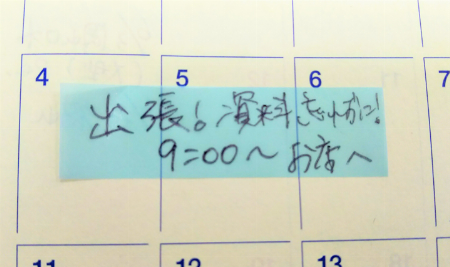 4 5 6 7
出張!資料きれいに!
9:00〜お店へ
11 12 13